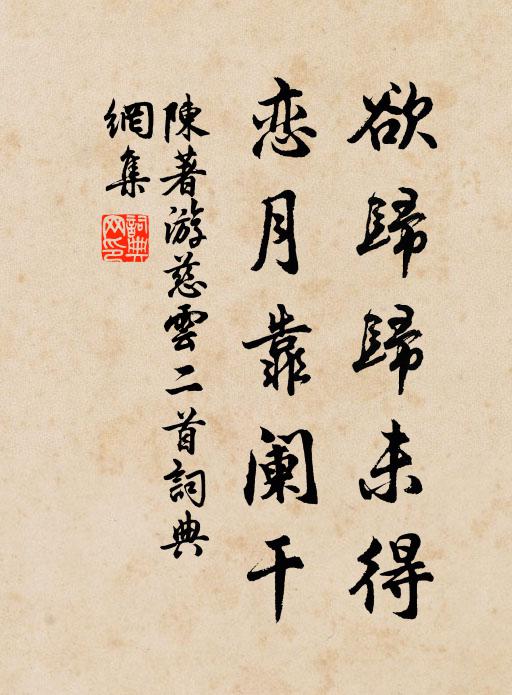 欲歸歸未得
恋月靠阑干
陳著游慈雲二首詞典
網集
詞典网印